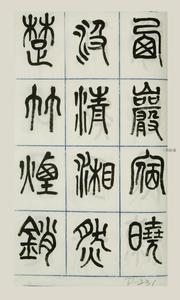 西巖宿曉
汲清湘然
楚竹煙銷
V-231